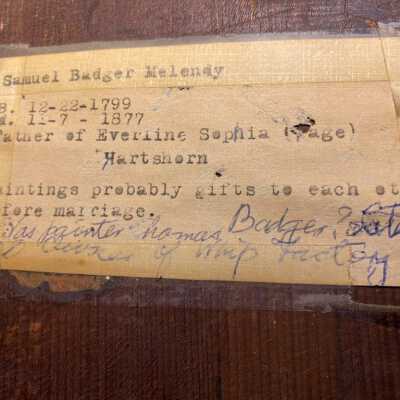 Samuel Badger Melendy
B. 12-22-1799
d. 11-7 - 1877
Father of Everline Sophia (Page)
Hartshorn
aintings probably gifts to each ot
fore marriage.
Was painter Thomas Badger?
Owner of Whip Factory